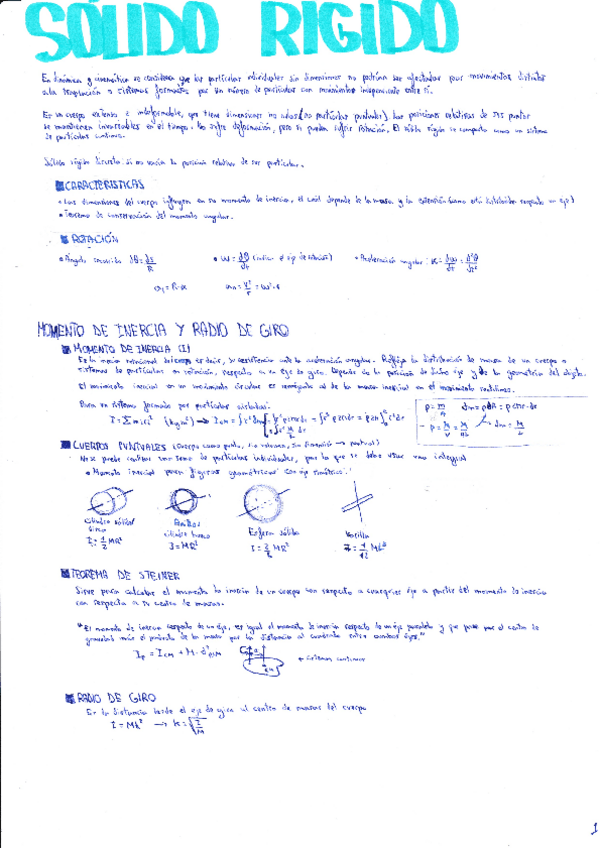 SÓLIDO RIGIDO
En dinámica y cinemática se considera que las partículas individuales sin dimensiones no podrían ser afectadas por movimientos distintos
a la traslación o sistemas formados por un número de partículas con movimientos independientes entre sí.
Es un cuerpo extenso e indeformable, que tiene dimensiones no nulas (no partículas puntuales). Las posiciones relativas de sus puntos
se mantienen invariables en el tiempo. No sufre deformación, pero si pueden sufrir rotación. El sólido rígido se comporta como un sistema
de partículas continuo.
Sólido rígido discreto: si no varía la posición relativa de sus partículas.
CARACTERISTICAS
Las dimensiones del cuerpo influyen en su momento de inercia, el cual depende de la masa y la extensión (como está distribuida respecto un eje)
Teorema de conservación del momento angular.
ROTACIÓN
Ángulo recorrido dθ = ds/R
ω = dθ/dt (indica el eje de rotación)
Aceleración angular: α = dω/dt = d²θ/dt²
MOMENTO DE INERCIA Y RADIO DE GIRO
MOMENTO DE INERCIA (I)
Es la inercia rotacional del cuerpo es decir, su resistencia ante la aceleración angular. Refleja la distribución de masa de un cuerpo o
sistemas de partículas en rotación, respecto a un eje de giro. Depende de la posición de dicho eje y de la geometría del objeto.
El momento inercial en un movimiento circular es semejante al de la masa inercial en el movimiento rectilíneo.
Para un sistema formado por partículas aisladas:
I = Σ mᵢrᵢ² (kg m²)
CUERPOS PUNTUALES (Cuerpo como punto, sin volumen, sin dimensión → puntual)
No se puede realizar una suma de partículas individuales, para lo que se debe usar una integral
Momento inercial para figuras geométricas con eje simétrico:
Cilindro sólido/
Disco
I = 1/2 MR²
cilindro hueco
I = MR²
Esfera sólida
I = 2/5 MR²
Varilla
I = 1/12 ML²
TEOREMA DE STEINER
Sirve para calcular el momento de inercia de un cuerpo con respecto a cualquier eje a partir del momento de inercia
con respecto a su centro de masas.
"El momento de inercia respecto de un eje, es igual al momento de inercia respecto de un eje paralelo y que pase por el centro de
gravedad más el producto de la masa por la distancia al cuadrado entre ambos ejes."
sistemas continuos
RADIO DE GIRO
Es la distancia desde el eje de giro al centro de masas del cuerpo
I = Mk² → k = √(I/M)
1